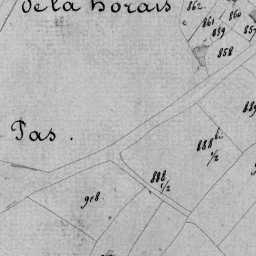 de la Borais
862
861
860
859
857
858
Pas.
888 bis
½
888
½
908